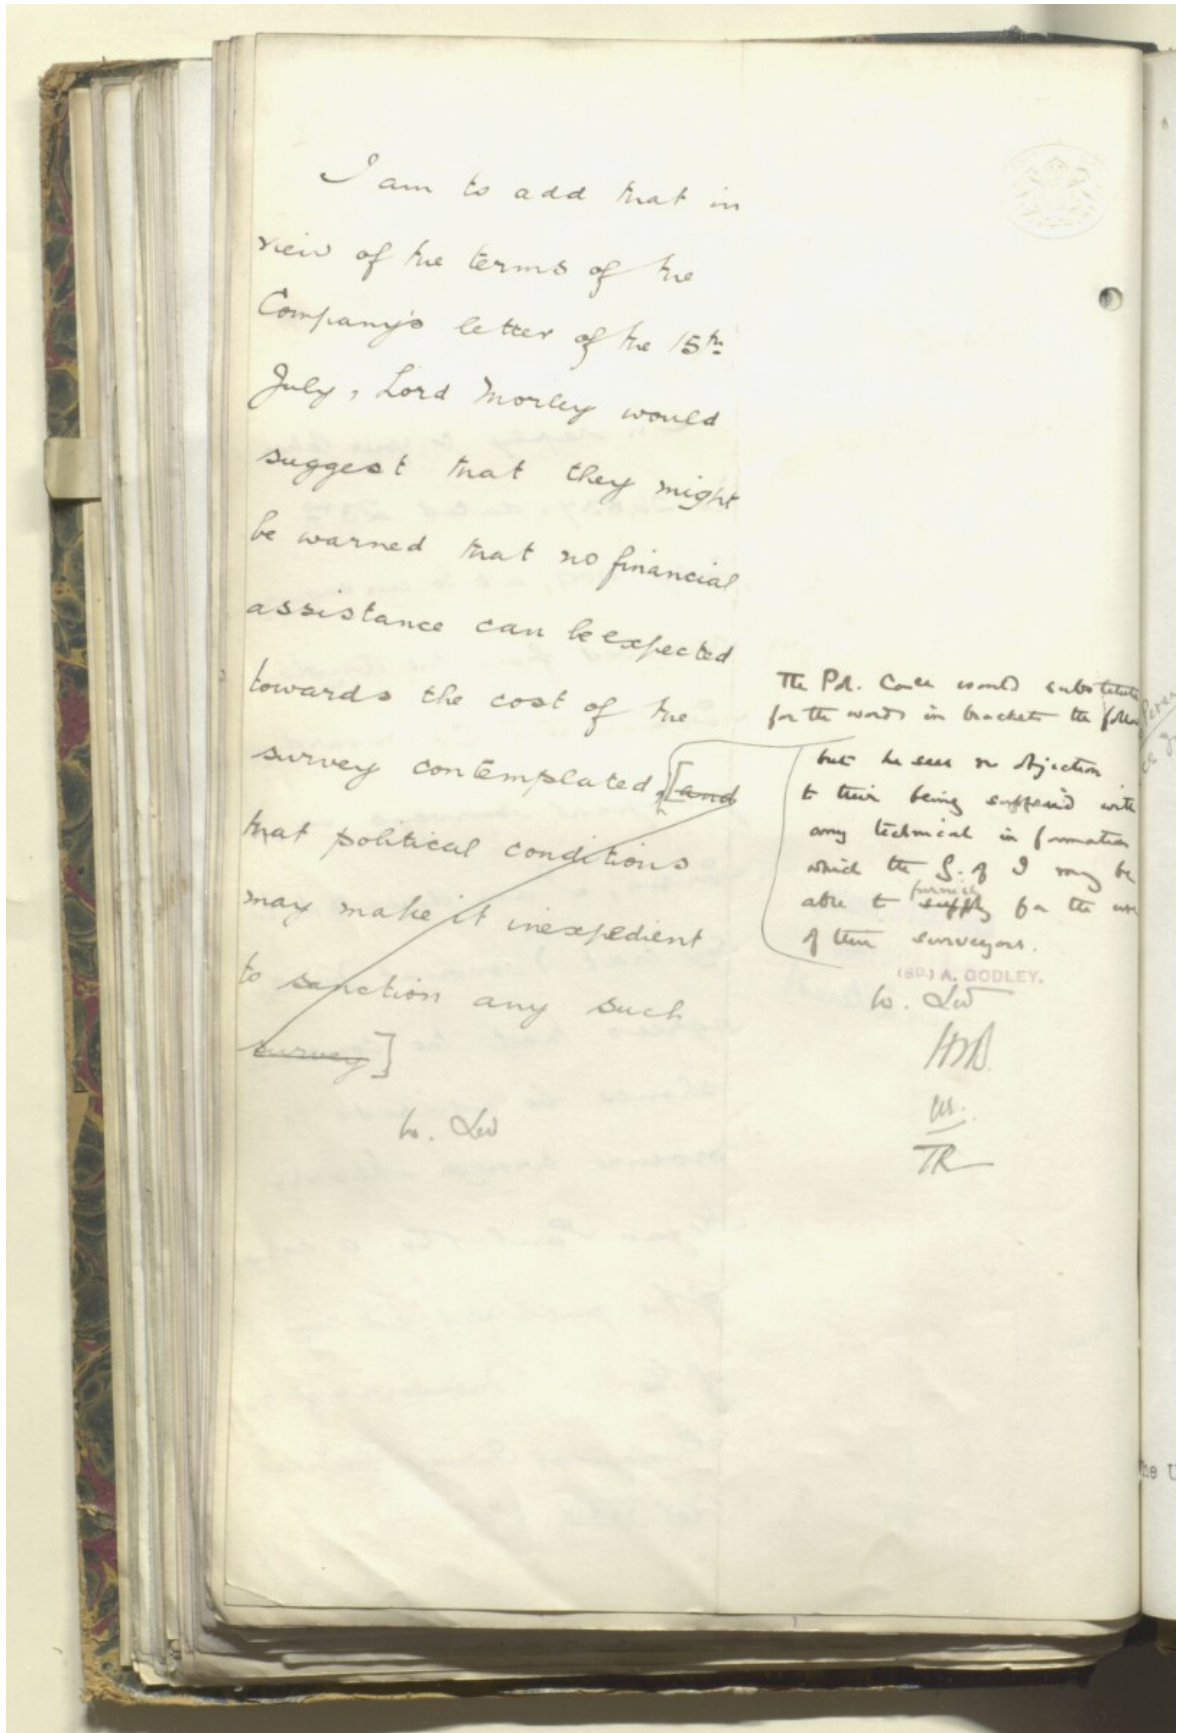 I am to add that in
view of the terms of the
Company's letter of the 15th
July, Lord Morley would
suggest that they might
be warned that no financial
assistance can be expected
towards the cost of the
survey contemplated, [and
that political conditions
may make it inexpedient
to sanction any such
survey]
The Pol. Cttee would substitute
for the words in brackets the
but he sees no objection
to their being supplied with
any technical information
which the G. of I may be
able to supply furnish for the use
of their surveyors.
(SD.) A. GODLEY.
HSB.
TR
he U